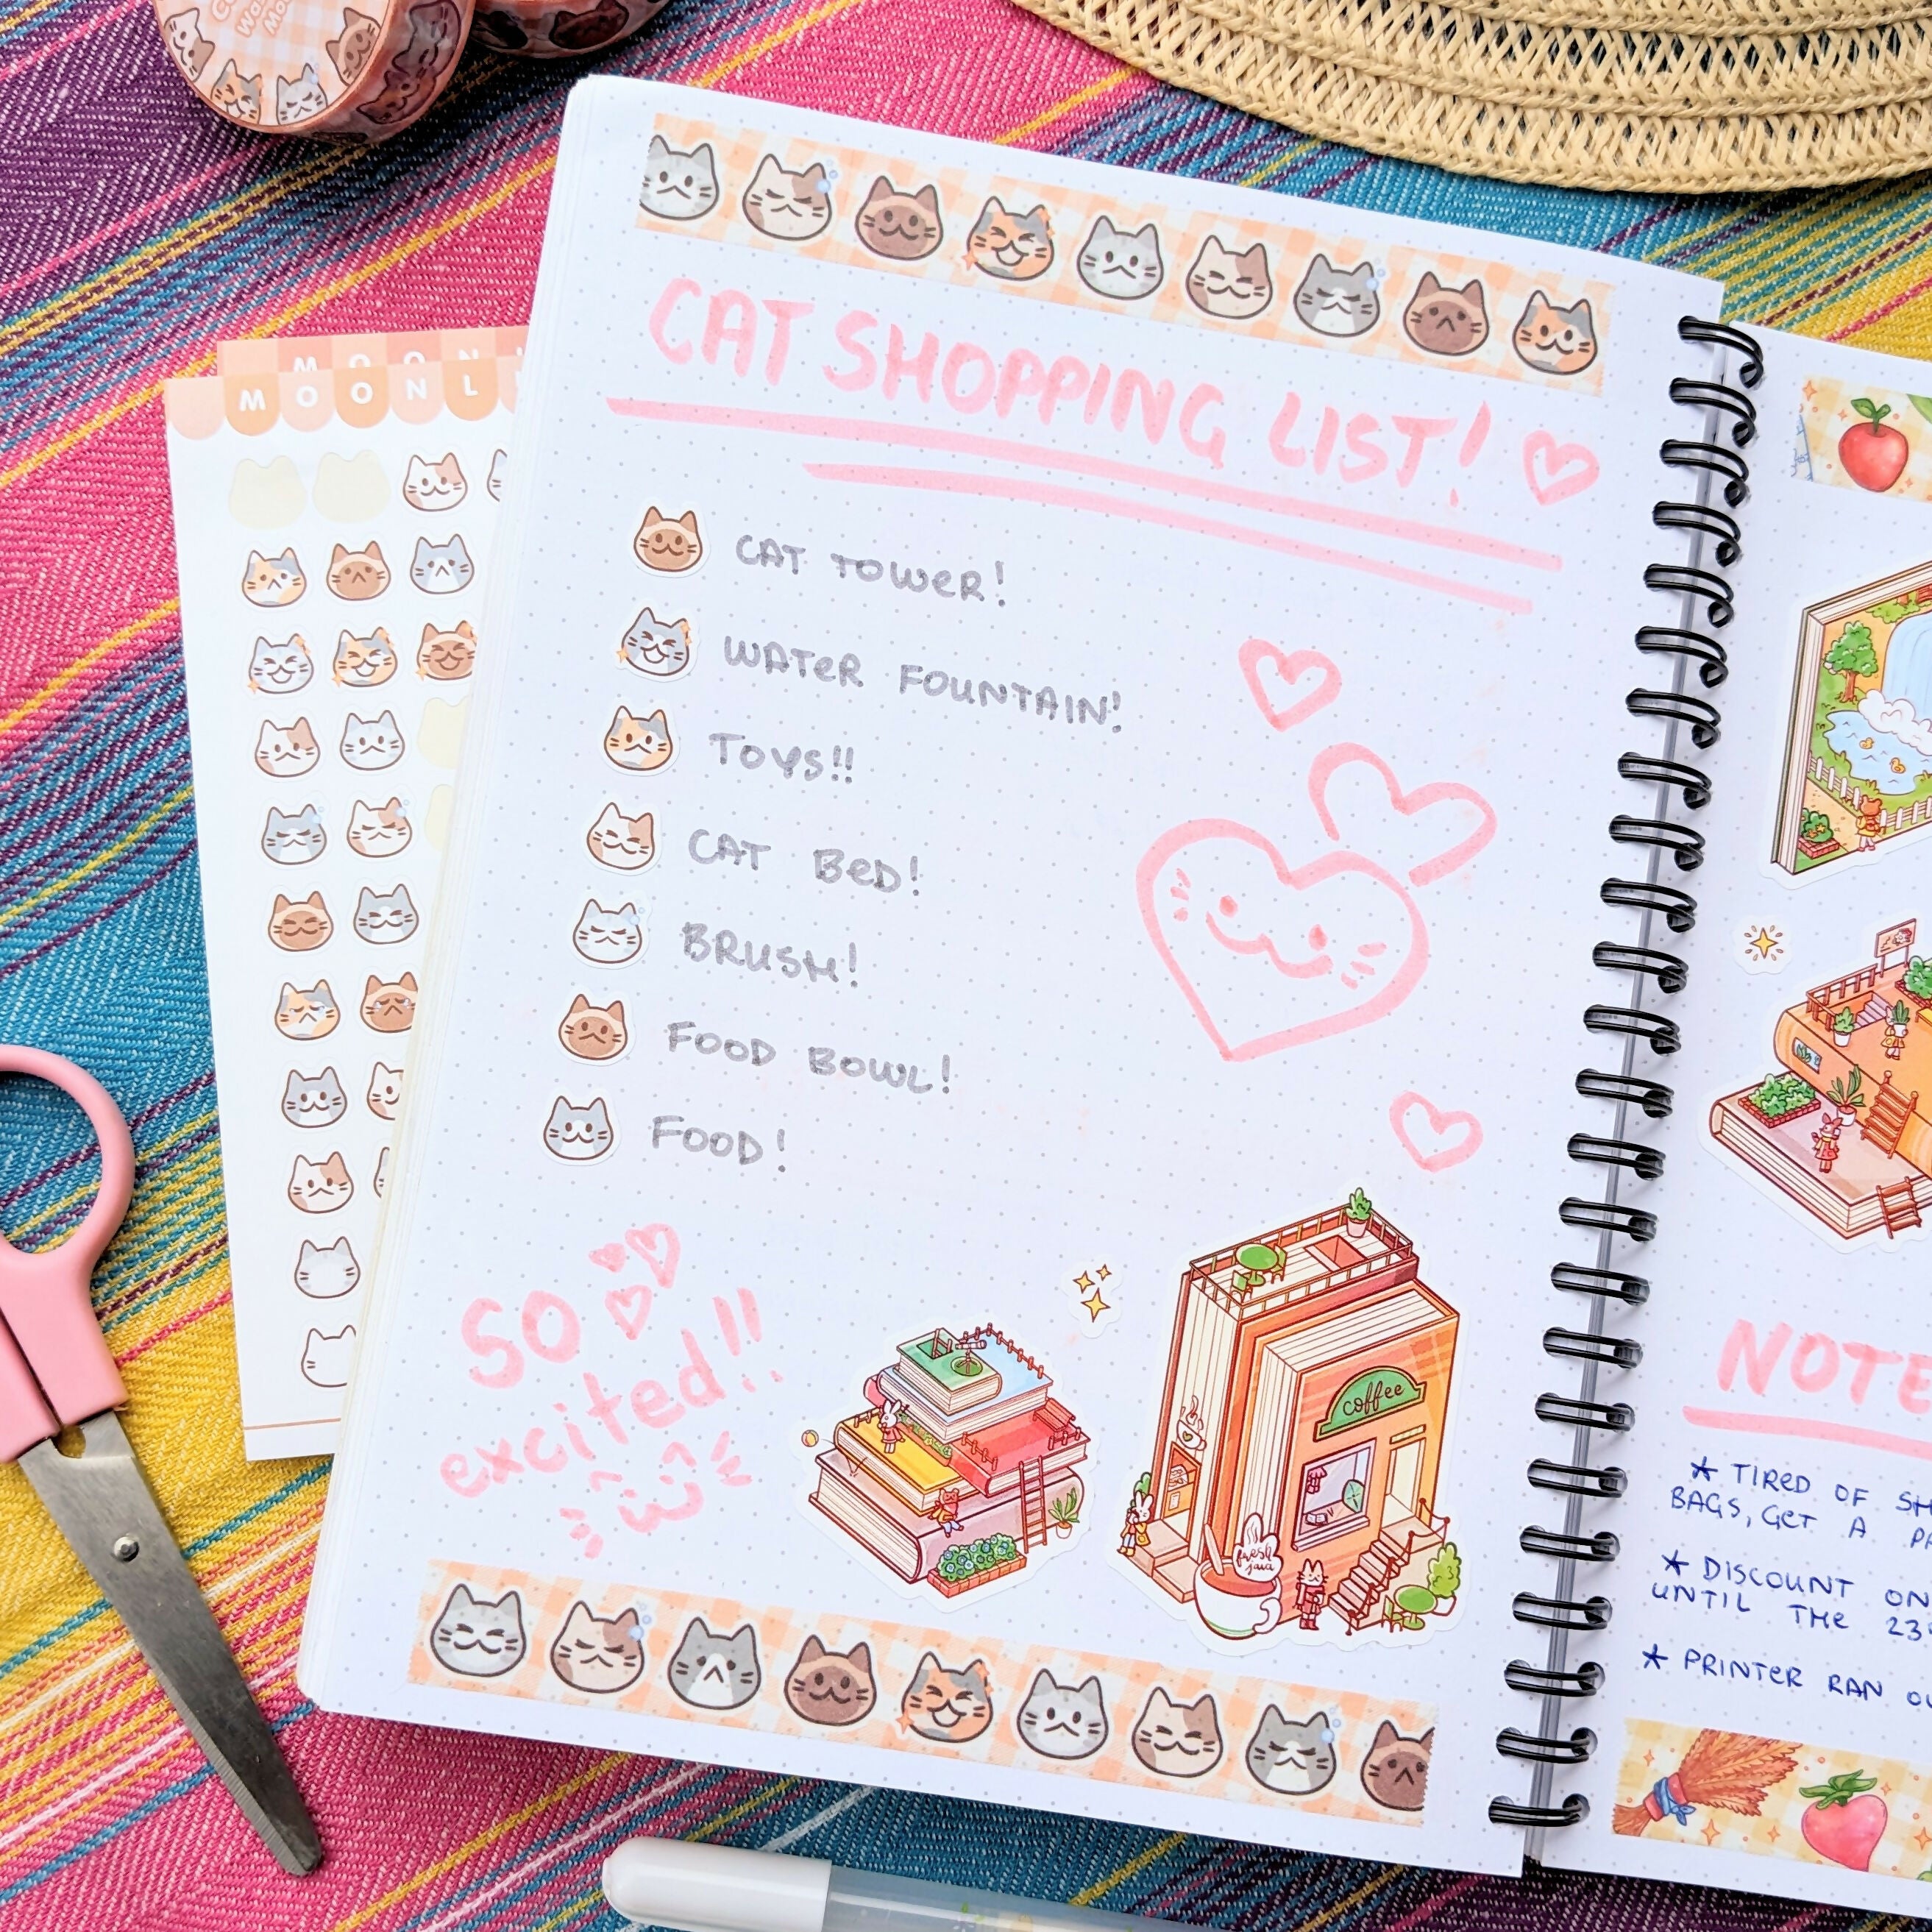 CAT SHOPPING LIST!
CAT TOWER!
WATER FOUNTAIN!
TOYS!!
CAT BED!
BRUSH!
FOOD BOWL!
FOOD!
SO
excited!!
coffee
fresh
java
* TIRED OF
BAGS, GET A
* DISCOUNT ON
UNTIL THE
* PRINTER RAN